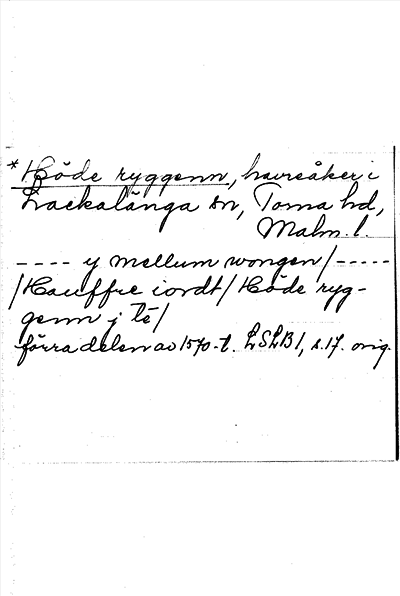 *Höde ryggenn, havreåker i
Lackalänga sn, Torna hd,
Malm. l.
---- y mellum wongen/-----
/Hauffre iordt/Höde ryg-
genn j tē/
förra delen av 1570-t. LSLB1, s.17. orig.